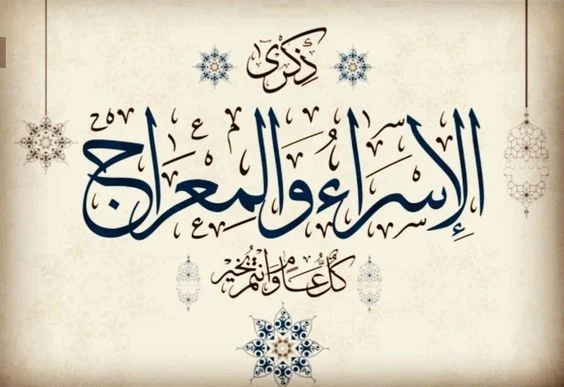 ذِكْرى
الإِسْرَاءُ وَالمِعْرَاج
كُلُّ عَامٍ وَأَنْتُمْ بِخَيْر